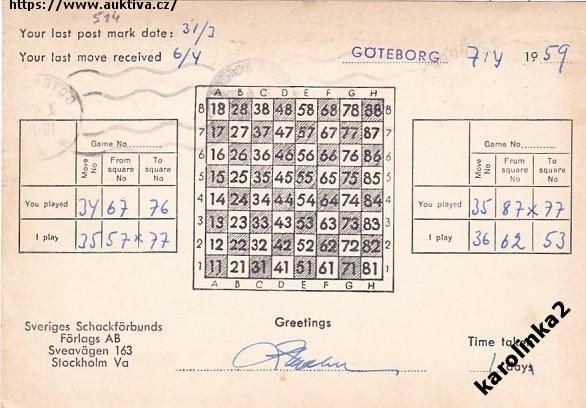 https://www.auktiva.cz/
514
Your last post mark date: 31/3
Your last move received 6/4
GÖTEBORG 7/4 1959
A B C D E F G H
8 18 28 38 48 58 68 78 88 8
7 17 27 37 47 57 67 77 87 7
6 16 26 36 46 56 66 76 86 6
5 15 25 35 45 55 65 75 85 5
4 14 24 34 44 54 64 74 84 4
3 13 23 33 43 53 63 73 83 3
2 12 22 32 42 52 62 72 82 2
1 11 21 31 41 51 61 71 81 1
A B C D E F G H
Game No
Move No From square No To square No
You played 34 67 76
I play 35 57 x 77
Game No
Move No From square No To square No
You played 35 87 x 77
I play 36 62 53
Sveriges Schackförbunds
Förlags AB
Sveavägen 163
Stockholm Va
Greetings
Time taken
1 days
karolinka2